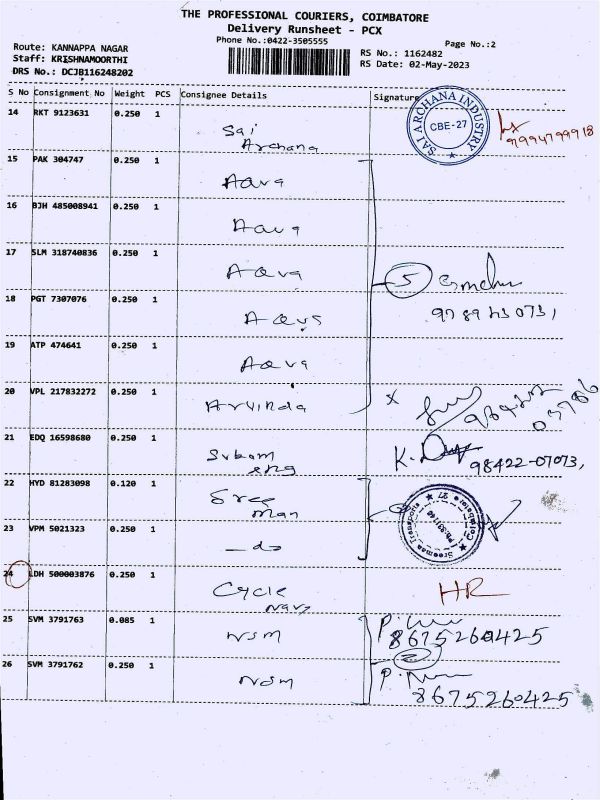 THE PROFESSIONAL COURIERS, COIMBATORE
Delivery Runsheet - PCX
Phone No.:0422-3505555
Page No.:2
Route: KANNAPPA NAGAR
Staff: KRISHNAMOORTHI
DRS No.: DCJB116248202
RS No.: 1162482
RS Date: 02-May-2023
S No Consignment No Weight PCS Consignee Details Signature
14 RKT 9123631 0.250 1 Sai Archana
SAI ARCHANA INDUSTRY
CBE-27
9994799918
15 PAK 304747 0.250 1 Aava
16 BJH 485008941 0.250 1 Aava
17 SLM 318740836 0.250 1 Aava
5
18 PGT 7307076 0.250 1 Aava
19 ATP 474641 0.250 1 Aava
20 VPL 217832272 0.250 1 Arvinda
X
21 EDQ 16598680 0.250 1 Subam eng
98422-07073,
22 HYD 81283098 0.120 1 Sree man
Sreeman Transports
Coimbatore 27
23 VPM 5021323 0.250 1 - do
24 LDH 500003876 0.250 1 Cycle
HR
25 SVM 3791763 0.085 1 NSM
8675260425
2
26 SVM 3791762 0.250 1 NSM
8675260425